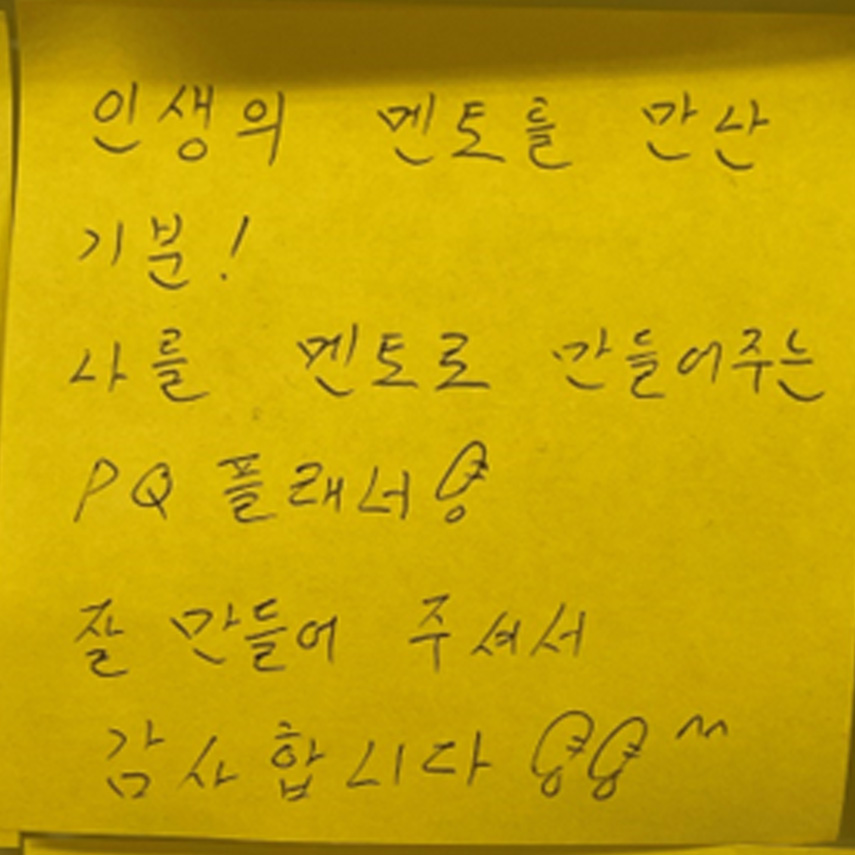 인생의 멘토를 만산
기분!
나를 멘토로 만들어주는
PQ 플래너
잘 만들어 주셔서
감사합니다 ^^